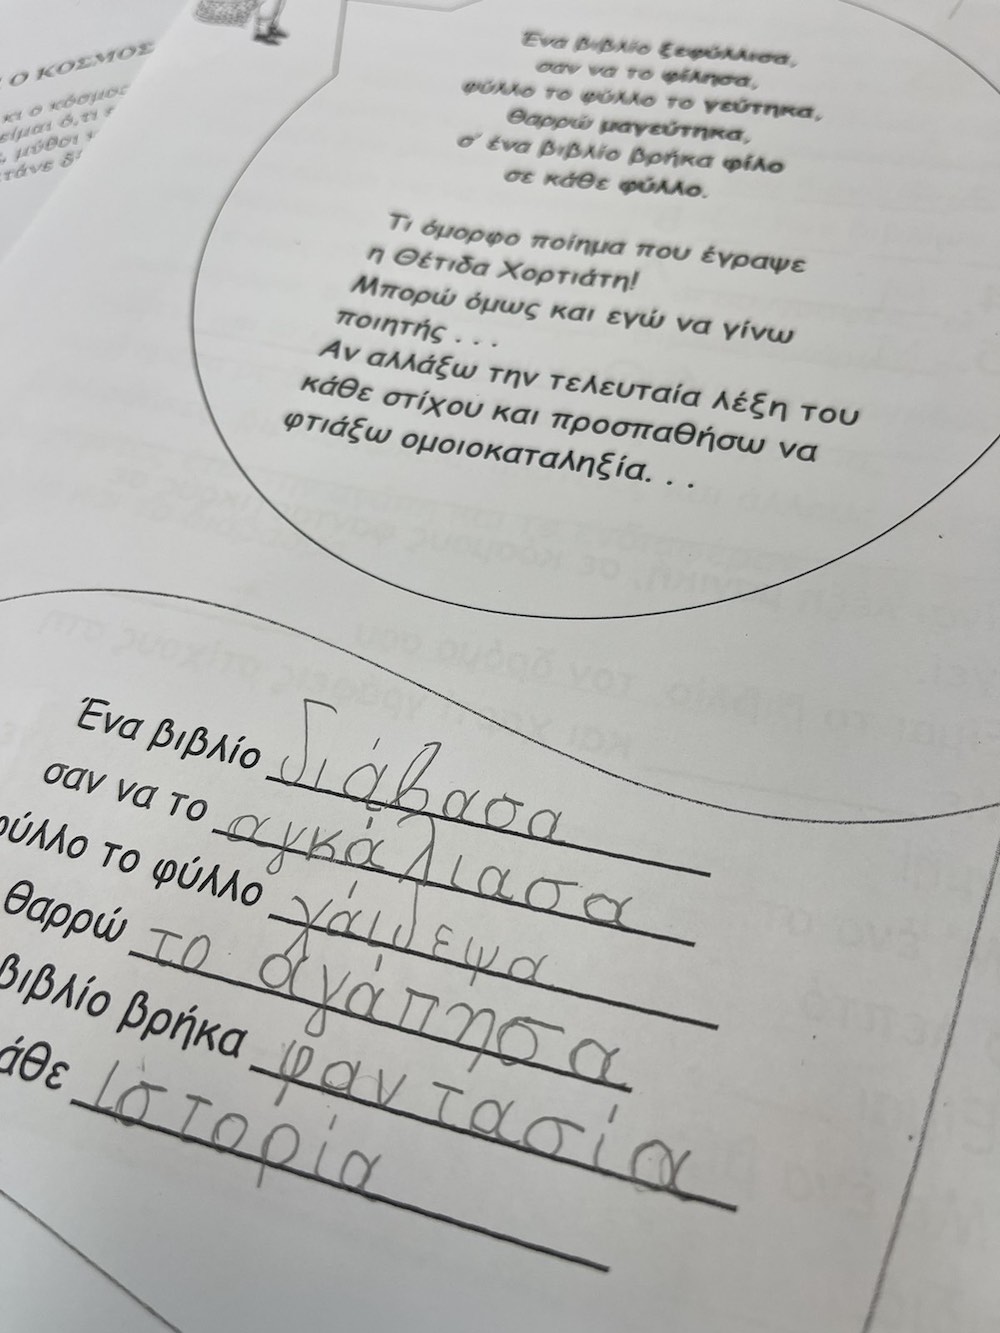 Ο ΚΟΣΜΟΣ
κι ο κόσμος
είμαι ό,τι
μύθοι
Ένα βιβλίο ξεφύλλισα,
σαν να το φίλησα,
φύλλο το φύλλο το γεύτηκα,
θαρρώ μαγεύτηκα,
σ' ένα βιβλίο βρήκα φίλο
σε κάθε φύλλο.
Τι όμορφο ποίημα που έγραψε
η Θέτιδα Χορτιάτη!
Μπορώ όμως και εγώ να γίνω
ποιητής . . .
Αν αλλάξω την τελευταία λέξη του
κάθε στίχου και προσπαθήσω να
φτιάξω ομοιοκαταληξία. . .
Ένα βιβλίο διάβασα
σαν να το αγκάλιασα
φύλλο το φύλλο χάιδεψα
θαρρώ το αγάπησα
βιβλίο βρήκα φαντασία
άθε ιστορία